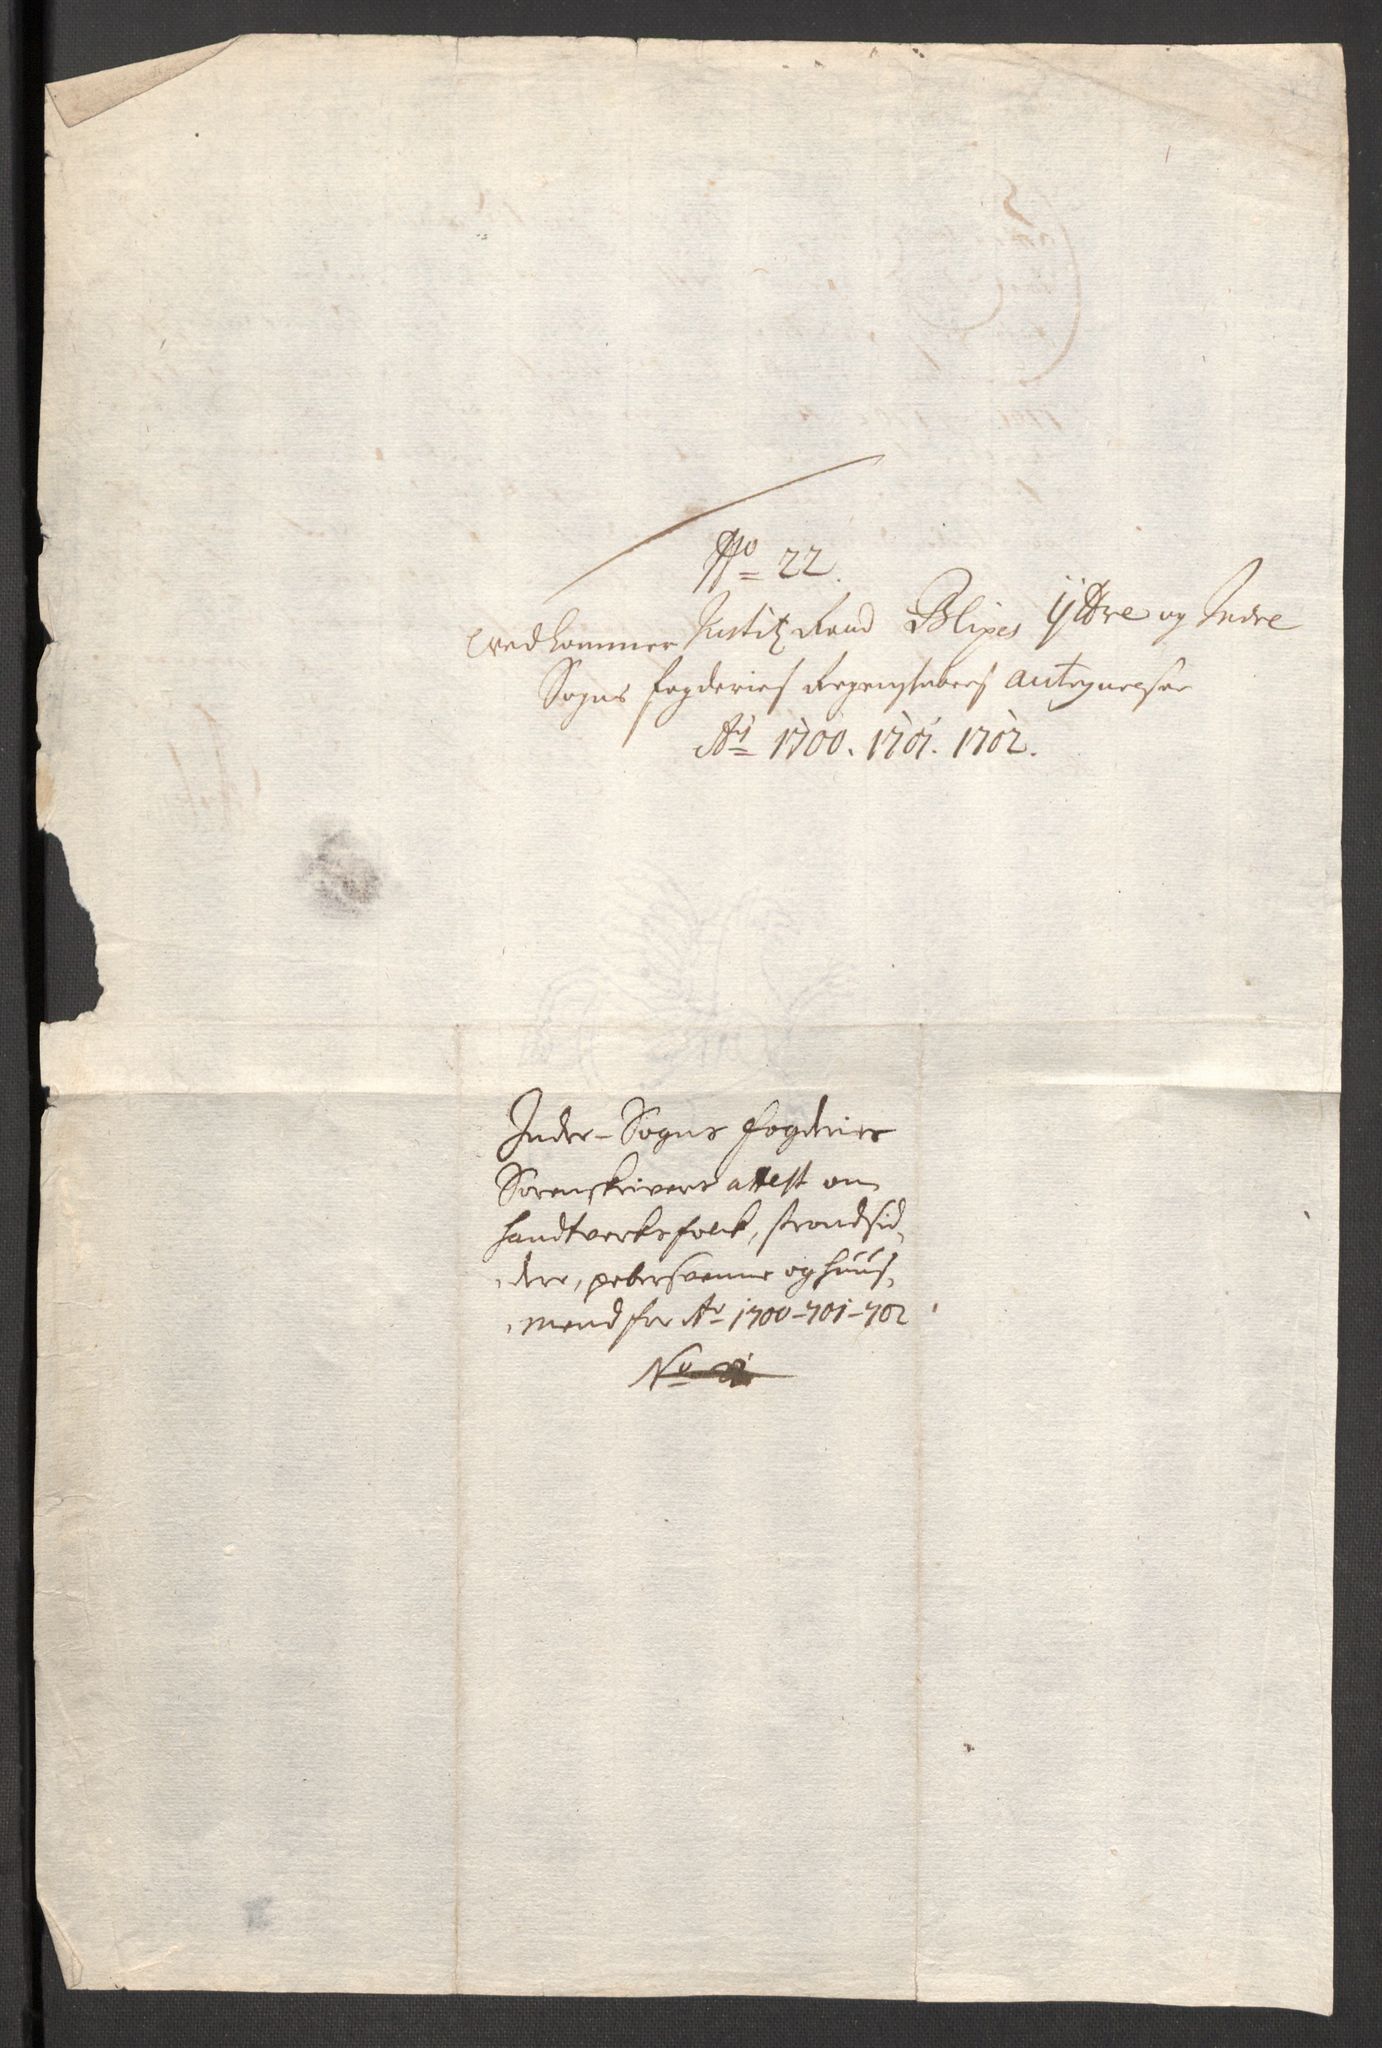 No 22.
Vedkommer Justitz Raad Blixes ÿttre og Indre
Sogns fogderies Regenskabers antegnelser
Ai 1700. 1701. 1702.
Inder-Sogns fogderies
Sorenskrivers attest om
handtverksfolck, strandsid-
dere, pebersvenne og huus-
mend for Ao 1700-701-702
No